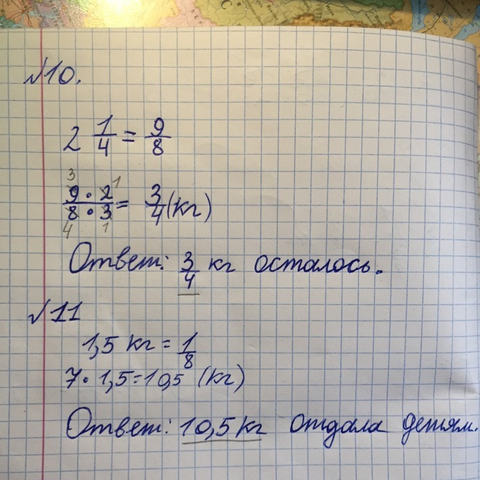 №10.
2 1/4 = 9/8
9 3 · 2 1 / 8 4 · 3 1 = 3/4 (кг)
Ответ: 3/4 кг осталось.
№11
1,5 кг = 1/8
7 · 1,5 = 10,5 (кг)
Ответ: 10,5 кг отдала детям.